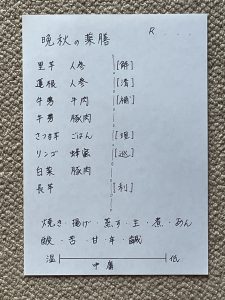 晩秋の薬膳 R...
里芋 人参 [解]
蓮根 人参 [清]
牛蒡 牛肉 [補]
牛蒡 豚肉
さつま芋 ごはん [理]
リンゴ 蜂蜜 [巡]
白菜 豚肉
長芋 [利]
焼き・揚げ・蒸す・生・煮・あん
酸・苦・甘・辛・鹹
温 低
中庸